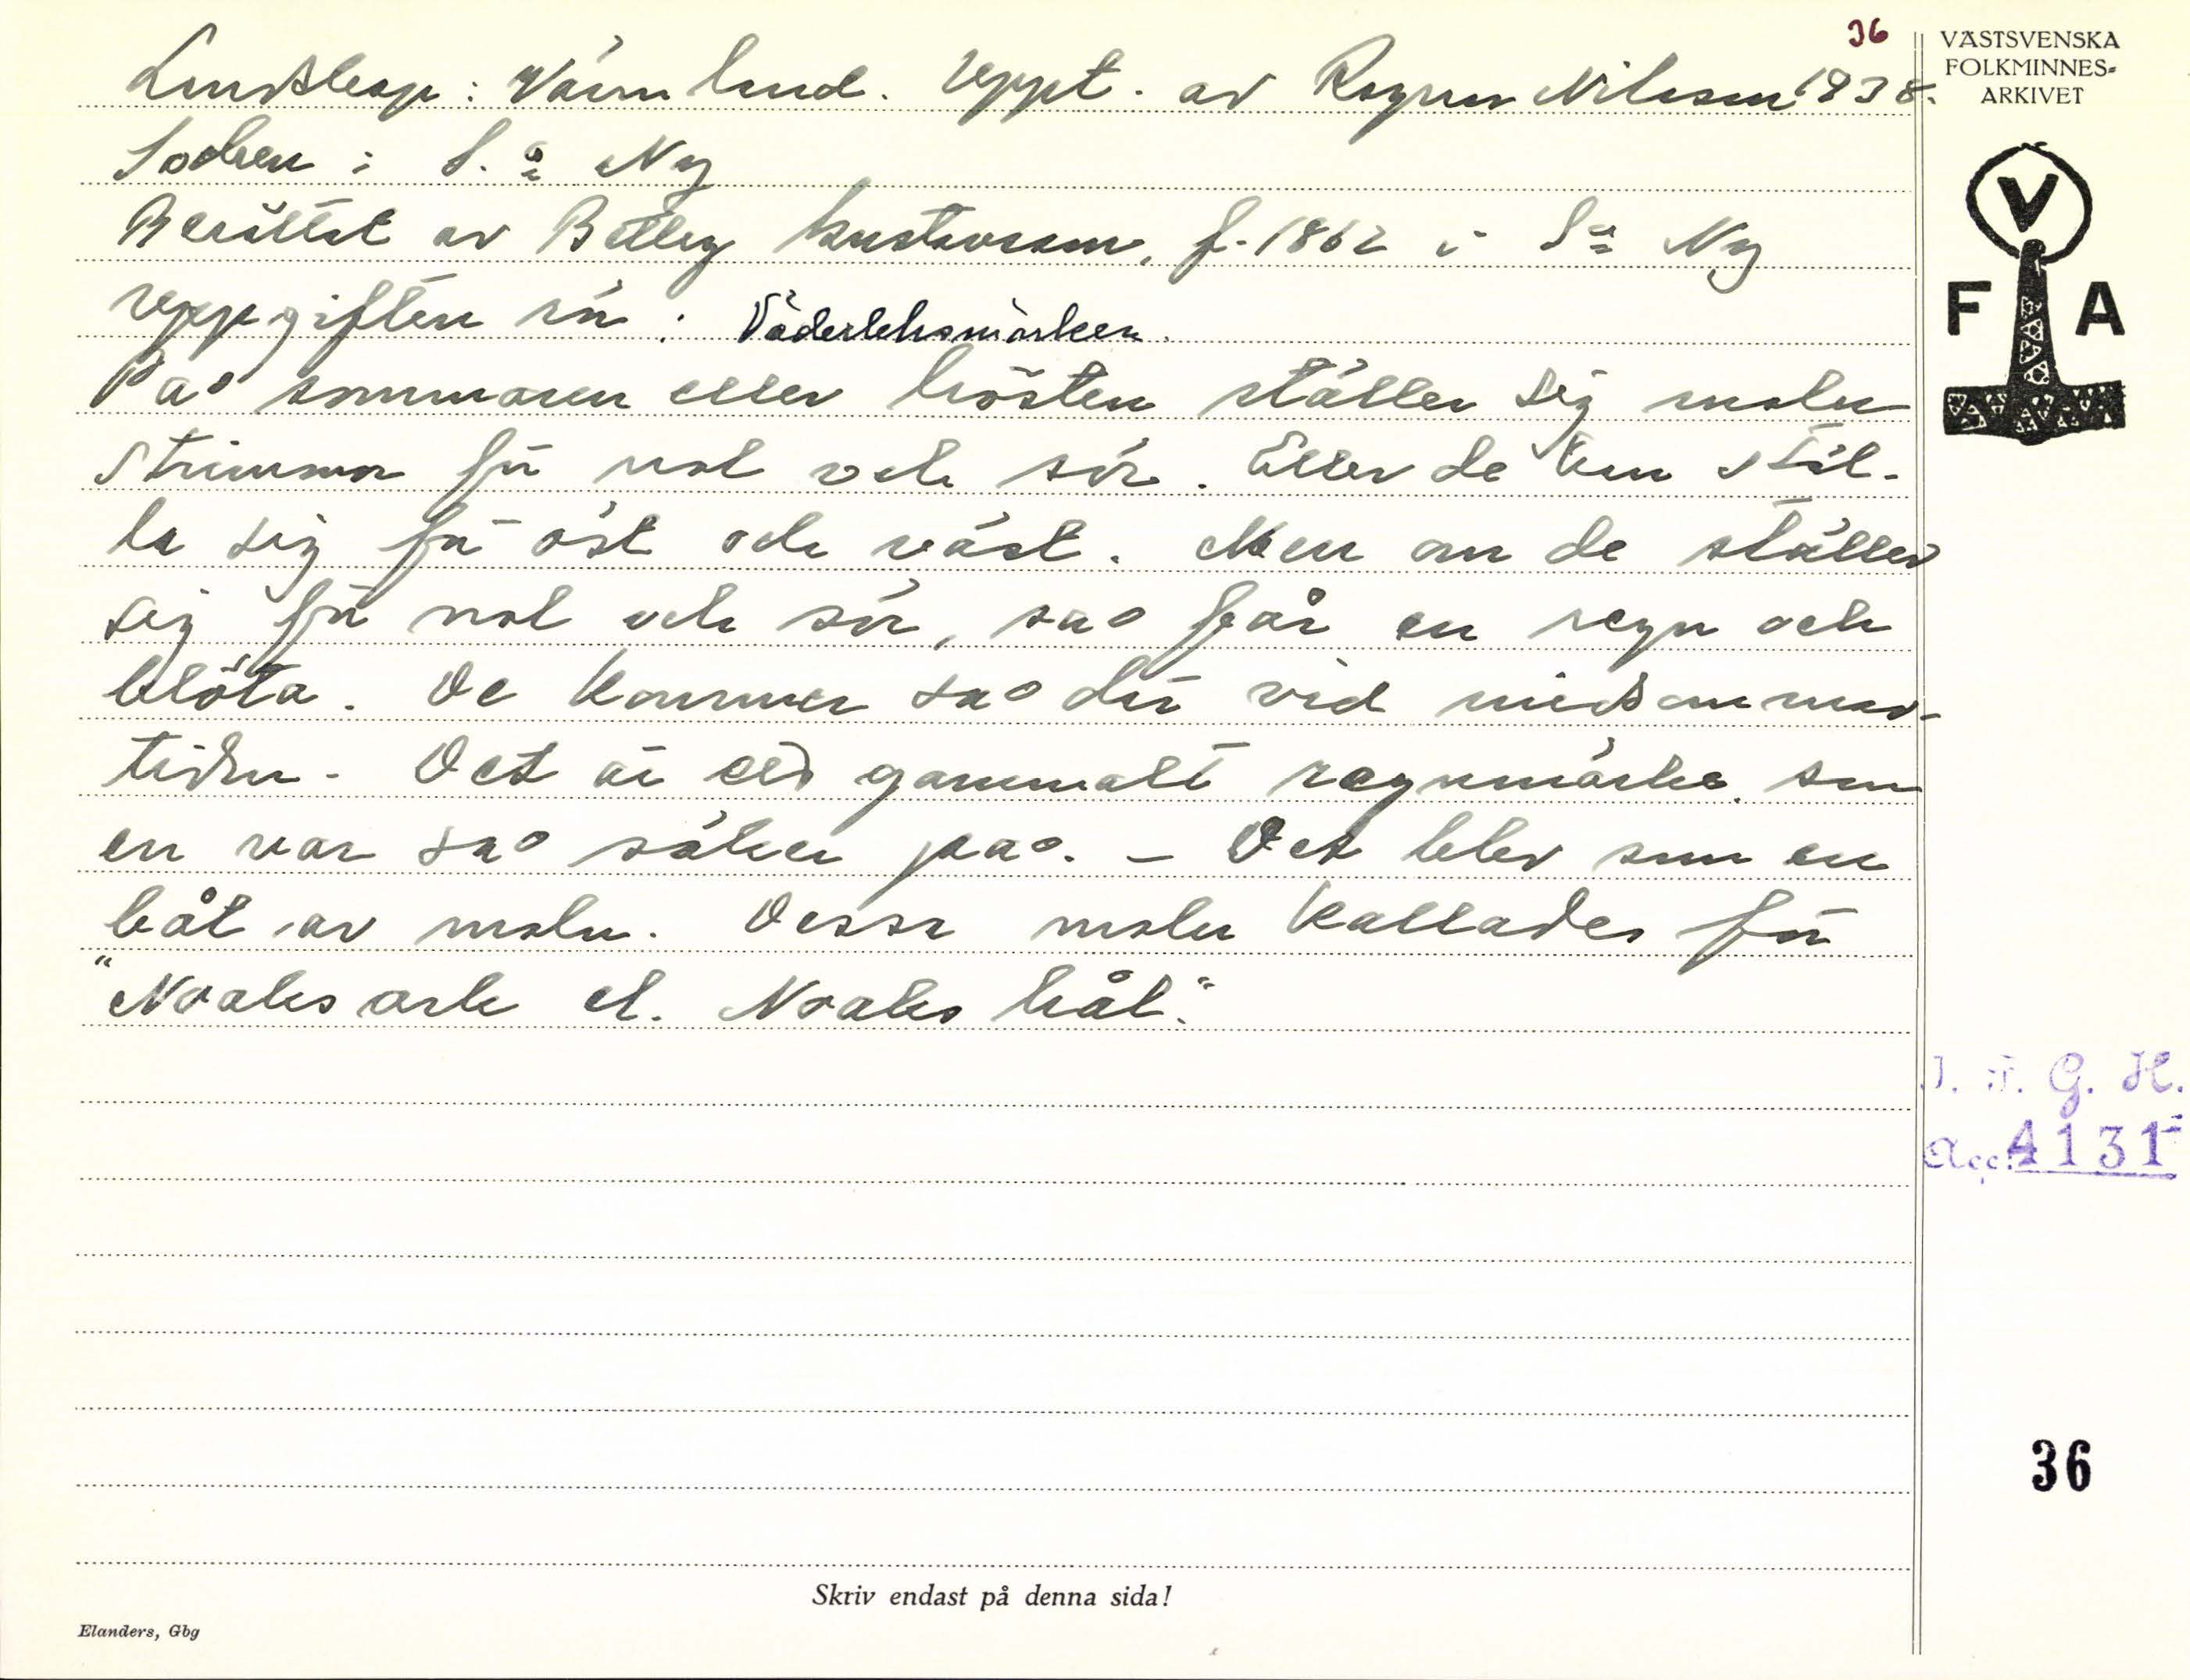 36
Landskap: Värmland. Uppt. av Ragnar Nilsson 1938.
Socken: S:a Ny
Berättat av Betty Gustavsson, f. 1862 i S:a Ny
Uppgiften rör: Väderleksmärken.
På sommaren eller hösten ställer sig moln
strimmor för nol och sör. Eller de kan stäl-
la sig för öst och väst. Men om de ställer
sig för nol och sör, så får en regn och
blöta. De kommer så där vid midsommar-
tiden. Det är ett gammalt regnmärke som
en var så säker på. - Det blev som en
båt av moln. Dessa moln kallades för
"Noaks ark el. Noaks båt."
VÄSTSVENSKA
FOLKMINNES-
ARKIVET
V
F A
I. F. G. H.
Acc. 4131
36
Skriv endast på denna sida!
Elanders, Gbg